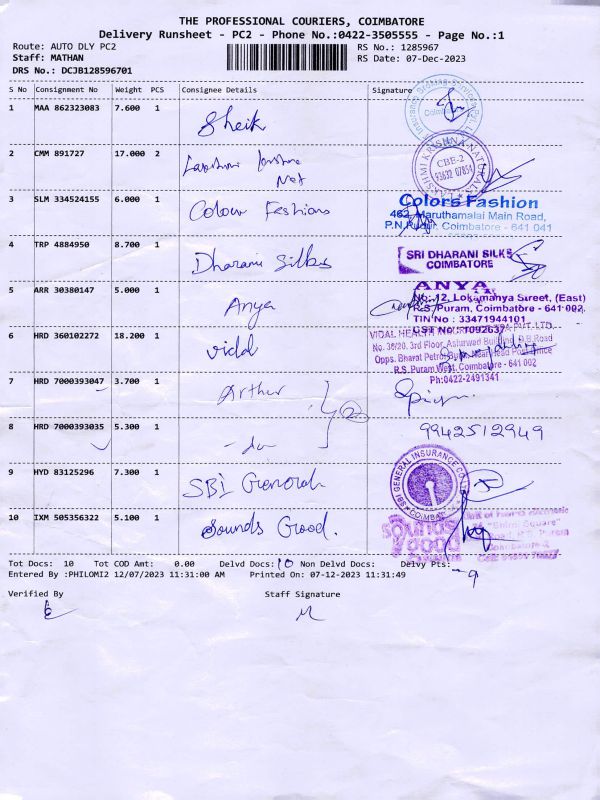 THE PROFESSIONAL COURIERS, COIMBATORE
Delivery Runsheet - PC2 - Phone No.:0422-3505555 - Page No.:1
Route: AUTO DLY PC2 RS No.: 1285967
Staff: MATHAN RS Date: 07-Dec-2023
DRS No.: DCJB128596701
S No Consignment No Weight PCS Consignee Details Signature
1 MAA 862323083 7.600 1 Sheik
Coimbatore
2 CMM 891727 17.000 2 Net
LAKSHMI KRISHNA NATURALS
CBE-2
93632 07854
3 SLM 334524155 6.000 1 Colour Fashions
Colors Fashion
462, Maruthamalai Main Road,
P.N.Pudur, Coimbatore - 641 041
4 TRP 4884950 8.700 1 Dharani Silks
SRI DHARANI SILKS
COIMBATORE
5 ARR 30380147 5.000 1 Anya
ANYA
No: 12, Lokamanya Street, (East)
R.S. Puram, Coimbatore - 641 002.
TIN No : 33471944101
CST No: 1092637
6 HRD 360102272 18.200 1 Vidal
VIDAL HEALTH
No. 36/20, 3rd Floor, Ashirwad Building, D.B.Road
Opps. Bharat Petrol Bunk, Near Head Post Office
R.S.Puram West, Coimbatore - 641 002
Ph:0422-2491341
7 HRD 7000393047 3.700 1 Arthur
8 HRD 7000393035 5.300 1 - do
9942512949
9 HYD 83125296 7.300 1 SBI General
SBI GENERAL INSURANCE CO.
COIMBATORE
10 IXM 505356322 5.100 1 Sounds Good.
sounds good
"Shimi Square"
Tot Docs: 10 Tot COD Amt: 0.00 Delvd Docs: 10 Non Delvd Docs: Delvy Pts: 9
Entered By :PHILOMI2 12/07/2023 11:31:00 AM Printed On: 07-12-2023 11:31:49
Verified By Staff Signature